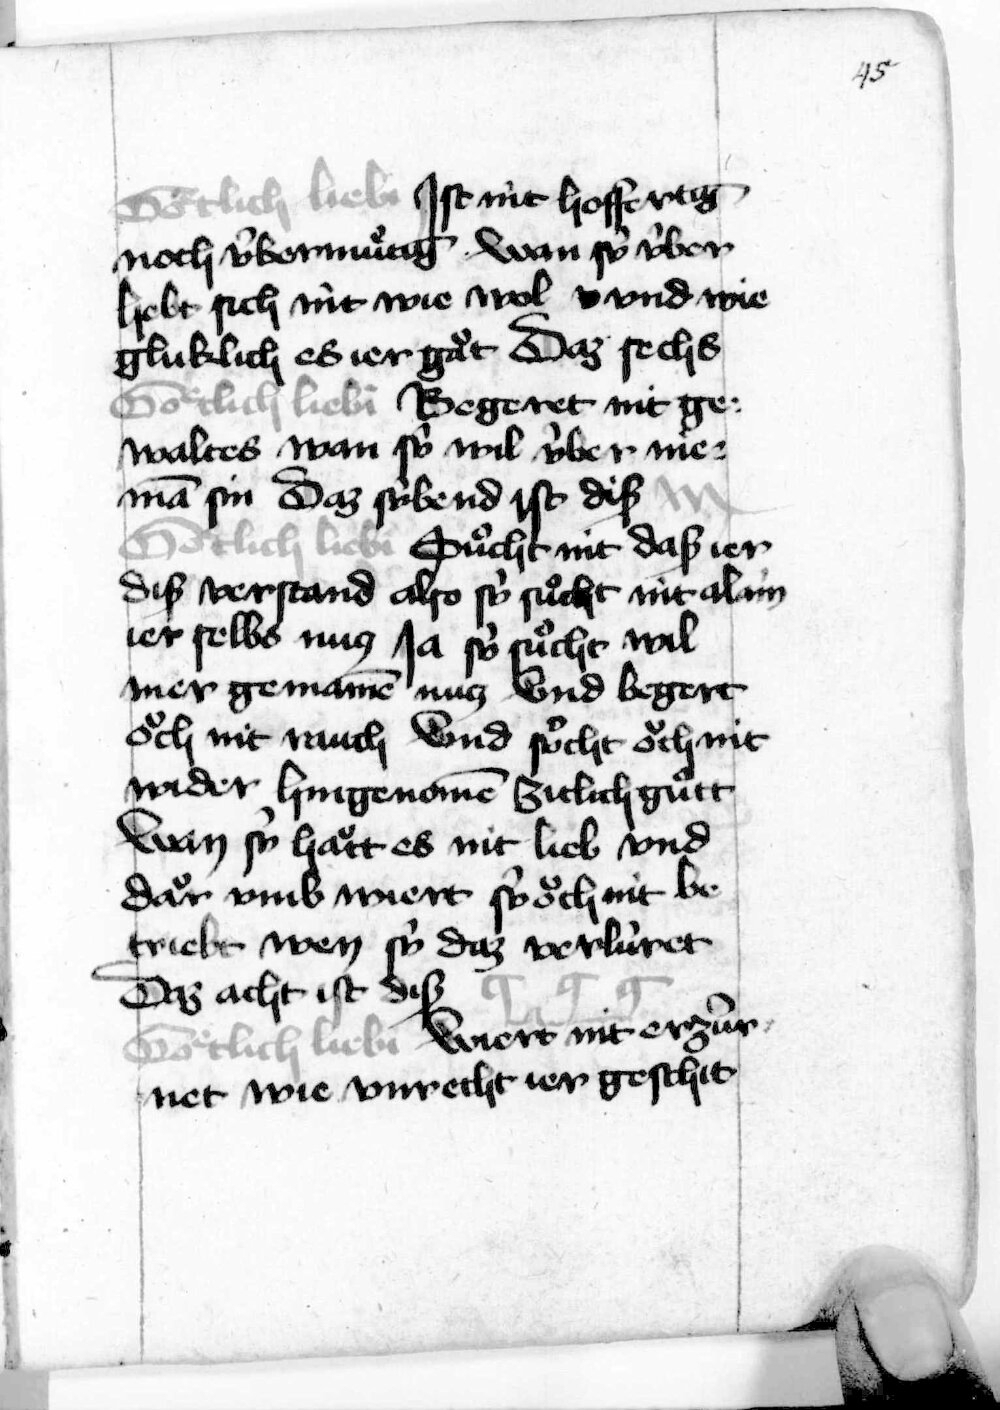 45
Goͤtlich liebi Ist nit hoffertig
noch v̇bermuͤtig wan sy̍ v̇ber
hebt sich nit wie wol v vnd wie
gluklich es ier gaͤt Daz sechs
Goͤtlich liebi Begeret nit ge:
waltes wan sy̍ wil v̇ber nie:
mā sin Daz sy̍bend ist diß
Goͤtlich liebi Suͦcht nit daß ier
diß verstand also sy̍ suͦcht nit alain
ier selbs nutz Ja sy̍ suͦcht wil
mer gemainē nutz Vnd begert
oͤch nit rauch Vnd sy̍ocht oͤch nit
wider hingenomē Zitlich guͤtt
Wan sy̍ haͤtt es nit lieb vnd
daͤr vmb wiert sy̍ oͤch nit be
triebt wen sy̍ daz verlúret
Daz acht ist diß
Goͤtlich liebi Wiert nit erzúr:
net wie vnrecht ier geschit